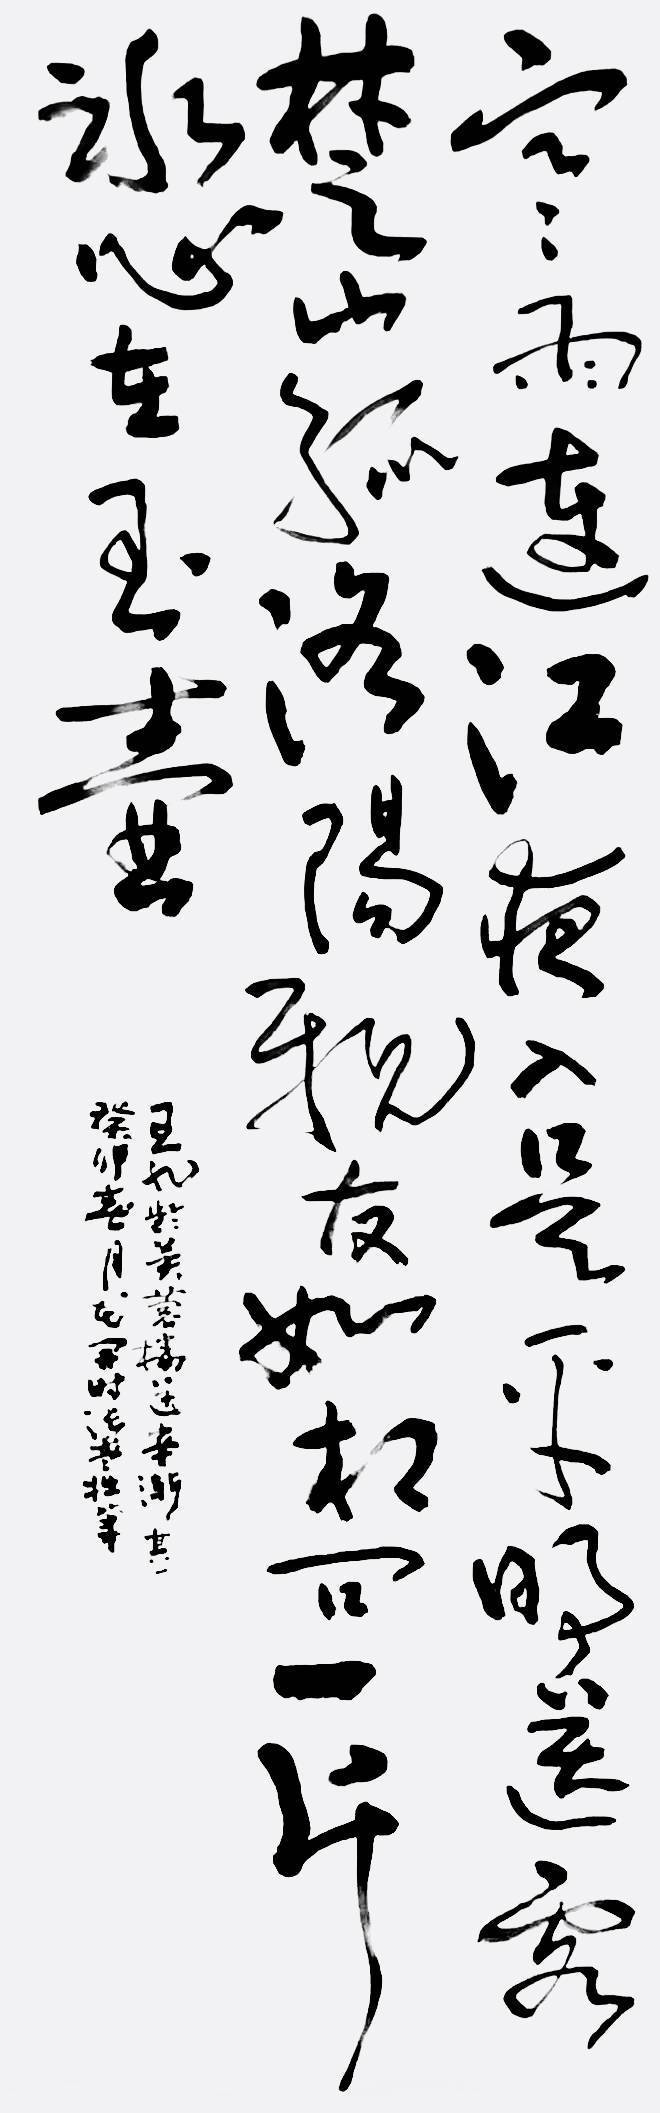 寒雨連江夜入吳平明送客
楚山孤洛陽親友如相問一片
冰心在玉壺
王昌齡芙蓉樓送辛漸其一
癸卯春月花開時